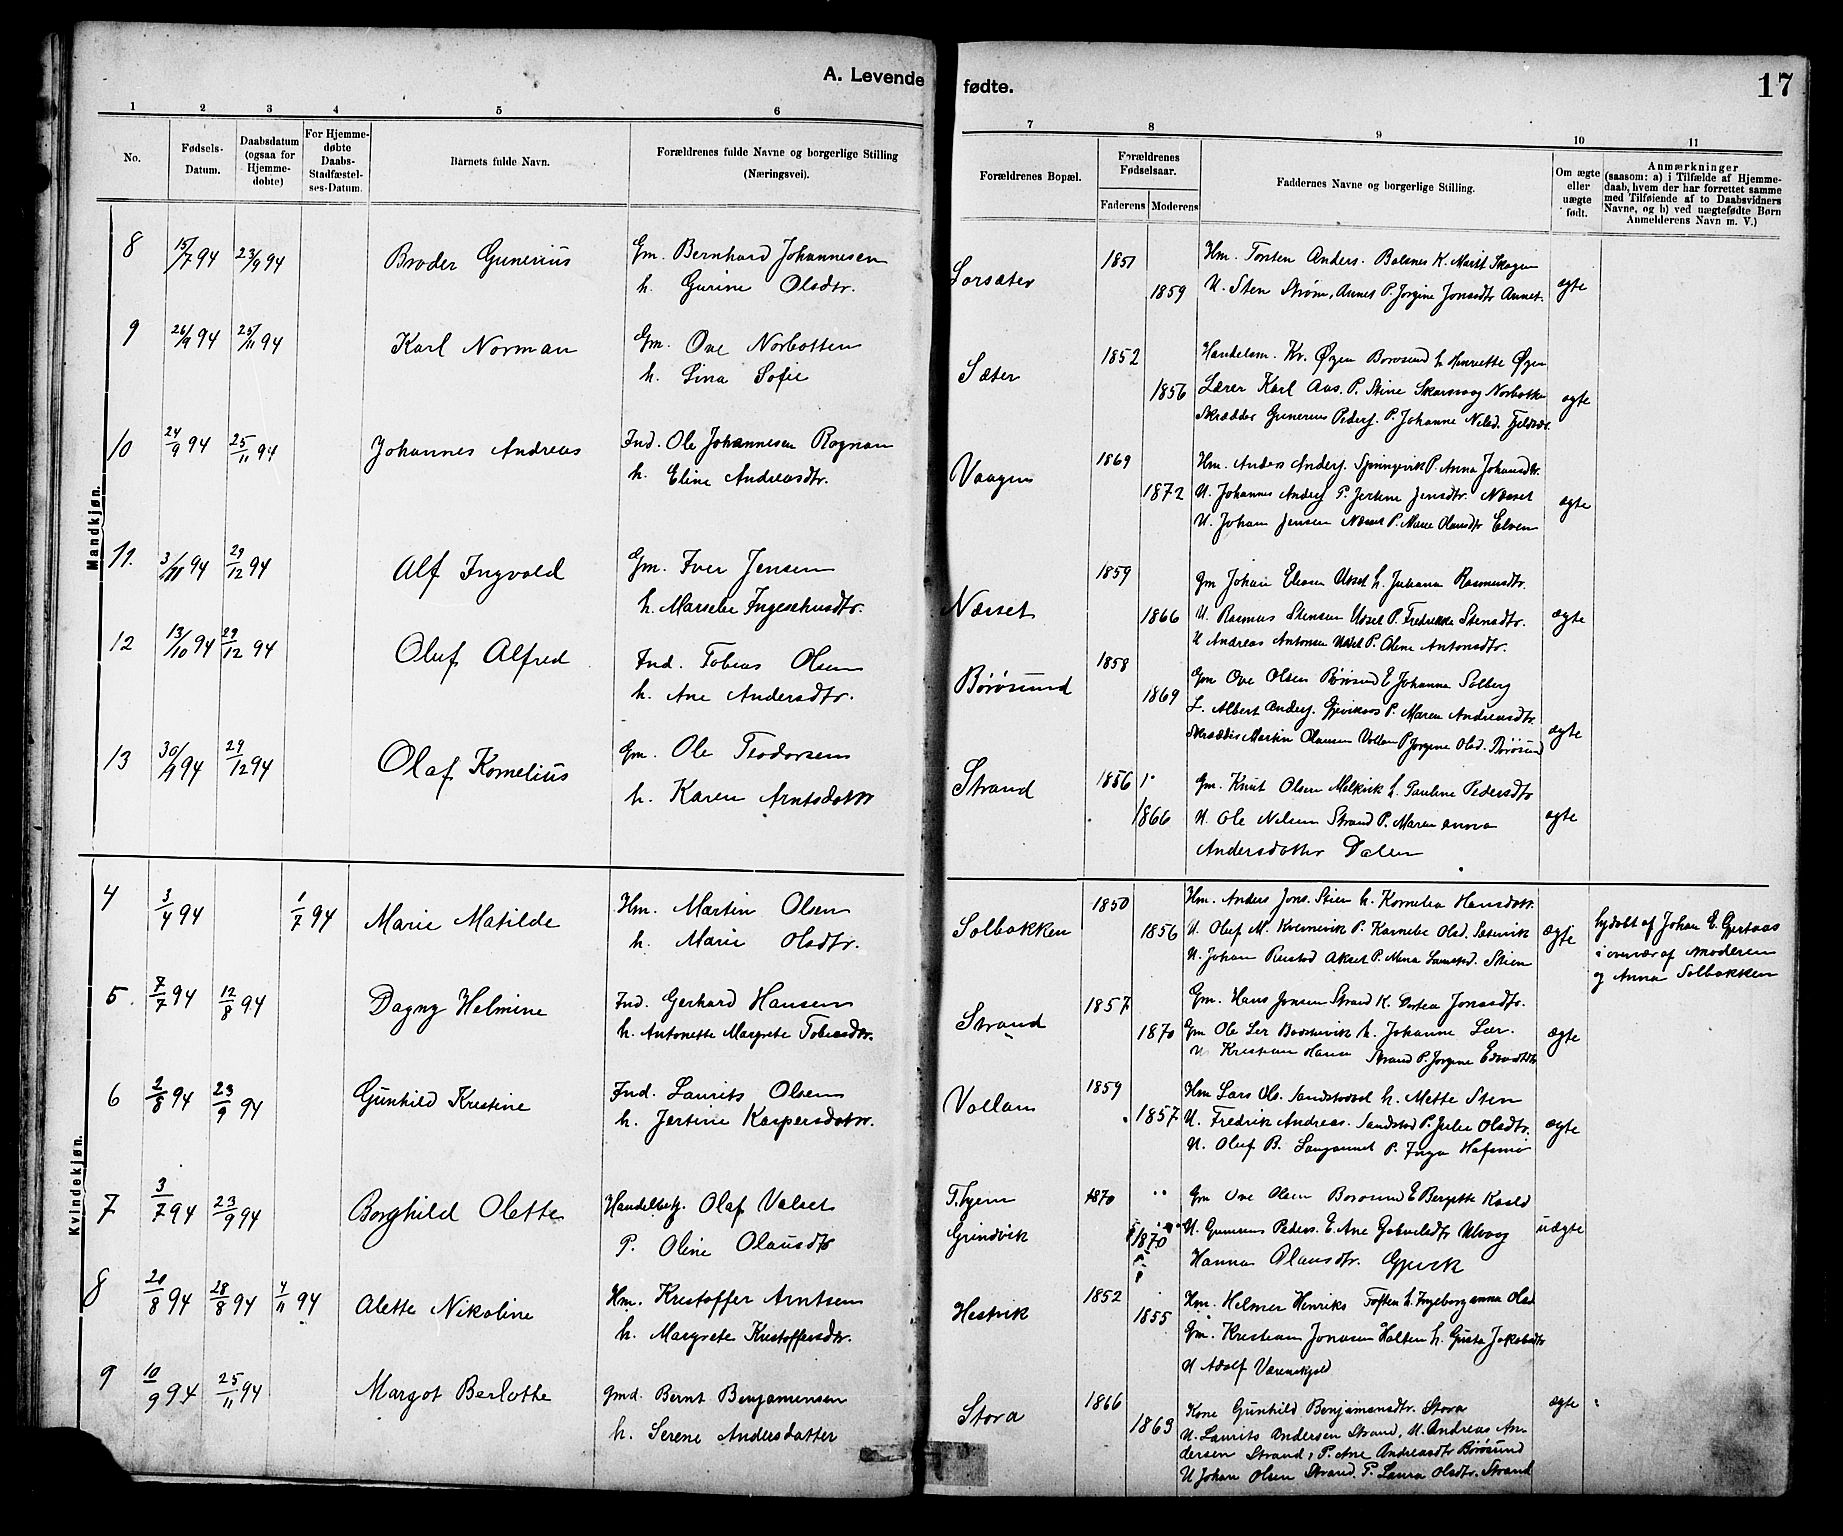 A. Levende fødte. 17
1 2 3 4 5 6 7 8 9 10 11
No.
Fødsels-
Datum.
Daabsdatum
(ogsaa for
Hjemme-
døbte)
For Hjemme-
døbte
Daabs-
Stadfæstel-
ses-Datum.
Barnets fulde Navn.
Forældrenes fulde Navne og borgerlige Stilling
(Næringsvei).
Forældrenes Bopæl.
Forældrenes
Fødselsaar.
Faderens Moderens
Faddernes Navne og borgerlige Stilling.
Om ægte
eller
uægte
født.
Anmærkninger
(saasom: a) i Tilfælde af Hjemme-
daab, hvem der har forrettet samme
med Tilføiende af to Daabsvidners
Navne, og b) ved uægtefødte Børn
Anmelderens Navn m. V.)
Mandkjøn.
8 15/7 94 23/9 94 Broder Gunerius
Gm. Bernhard Johannesen
h. Gurine Olsdtr.
Sorsæter 1851 1859
Hm. Torsten Anders. Balsnes K. Marit Skogen
U. Sten Strøm, Annes P. Jorgine Jonsdtr Annet.
ægte
9 26/9 94 25/11 94 Karl Norman
Gm. Ove Norbotten
h. Lina Sofie
Sæter 1852 1856
Handelsm. Kr. Øyen Børøsund h. Henriette Øyen
Lærer Karl Aas. P. Stine Skarsvaag Norbotten
Skrædder Gunerius Peders. P. Johanne Nilsd. Fjeldvær
ægte
10 24/9 94 25/11 94 Johannes Andreas
Ind. Ole Johannesen Rognan
h. Eline Andreasdtr.
Vaagen 1869 1872
Hm. Anders Anders. Springvik P. Anna Johansdtr.
U. Johannes Anders P. Jertine Jensdtr. Næsset
U. Johan Jensen Næsset P. Marie Olausdtr Elven
ægte
11. 3/11 94 29/12 94 Alf Ingvald
Gm. Iver Jensen
h. Marselie Ingebrigtsdtr.
Næsset 1859 1866
Gm Johan Eliasen Uset h. Juliana Rasmusdtr.
U. Rasmus Stensen Uset P. Fredrikke Stensdtr.
U Andreas Antonsen Uset P. Oline Antonsdtr.
ægte
12 13/10 94 29/12 94 Oluf Alfred
Ind. Tobias Olsen
h. Ane Andersdtr.
Børøsund 1858 1869
Gm Ove Olsen Børøsund E Johanna Solberg
L. Albert Anders. Gjevikaas P. Maren Andreasdtr.
Skrædder Martin Olausen Vollan P Jorgine Olsd. Børøsund
ægte
13 30/9 94 29/12 94 Olaf Kornelius
Gm. Ole Teodorsen
h. Karen Arntsdatr
Strand 1856 1866
Gm. Knut Olsen Melkvik h. Pauline Pedersdtr
U. Ole Nilsen Strand P. Maren Anna
Andersdatter Dalen
ægte
Kvindekjøn.
4 3/4 94 1/7 94 Marie Matilde
Hm. Martin Olsen
h. Marie Olsdtr.
Solbakken 1850 1856
Hm. Anders Jons. Stien h. Kornelia Hansdatr.
U. Oluf M. Kvernvik P. Karnelie Olsd. Sætervik
U. Johan Rustad Akset P. Mina Stien
ægte
hjdøbt af Johan E. Gjertaas
i overvær af moderen
og Anna Solbakken
5. 7/7 94 12/8 94 Dagny Helmine
Ind. Gerhard Hansen
h. Antonette Margrete Tobiasdtr.
Strand 1857 1870
Gm. Hans Jonsen Strand K. Dortea Jonasdtr.
Gm Ole Ler Badstuvik h. Johanne Lær.
U Kristian Hansen Strand P. Jorgine Edvardsdtr
ægte
6 2/8 94 23/9 94 Gunhild Kristine
Ind. Laurits Olsen
h. Jertine Kaspersdatr.
Vollan 1859 1857
Hm Lars Ols. Sandstad h. Mette Sten
U. Fredrik Andreas. Sandstad P. Julie Olsdtr.
U. Oluf B. P. Inga Hafsmo
ægte
7 3/7 94 23/9 94 Borghild Olette
Handelbetj. Olaf Valset
P. Oline Olausdtr
T.hjem
Grindvik 1870 1870
Gm Ove Olsen Børøsund E Bergitte
U. Gunerius Peders. E. Ane Ulvaag
Hanna Olausdtr. Gjevik
uægte
8 20/8 94 28/8 94 4/11 94 Alette Nikoline
Hm. Kristoffer Arntsen
h. Margrete Kristoffersdtr.
Hestvik 1852 1855
Hm. Helmer Henriks Toften h. Ingeborganna Olsd
Gm. Kristian Jonasen Holten h. Gusta Jakobsdtr
U Adolf Værnskjold
9 10/9 94 25/11 94 Margot Berlotte
Gmd. Bernt Benjaminsen
h. Serene Andersdatter
Stora 1866 1863
Kone Gunhild Benjaminsdtr. Stora
U. Laurits Andersen Strand, U. Andreas An-
dersen Strand, P. Ane Andreasdtr Børøsund
U Johan Olsen Strand. P. Laura Olsdtr. Strand
ægte